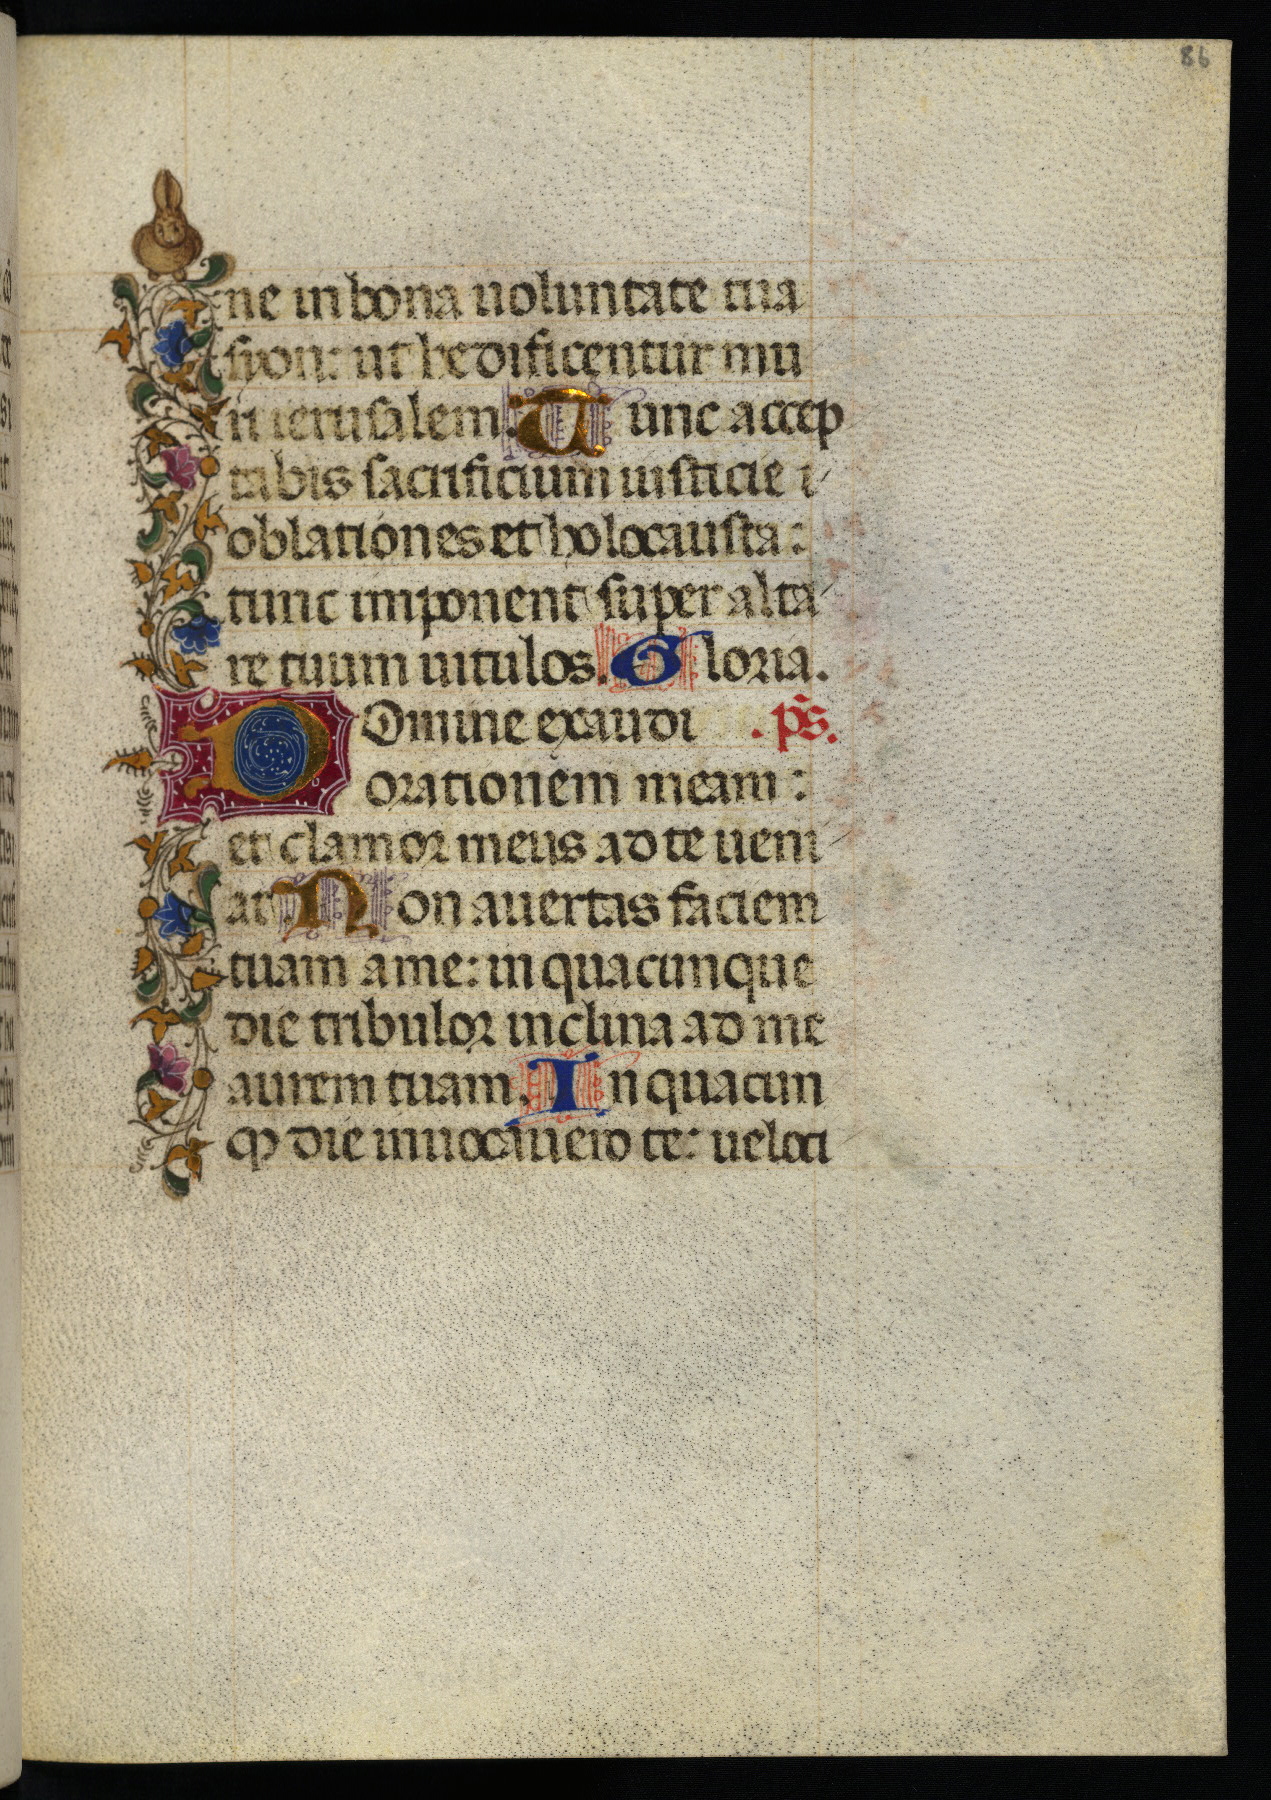 86
ne in bona uoluntate tua
syon: ut hedificentur mu
ri ierusalem. Tunc accep
tabis sacrificium iusticie
oblationes et holocausta:
tunc imponent super alta
re tuum uitulos. Gloria.
Domine exaudi .ps̄.
orationem meam:
et clamor meus ad te ueni
at. Non auertas faciem
tuam a me: in quacunque
die tribulor inclina ad me
aurem tuam. In quacun
qꝫ die inuocauero te: ueloci